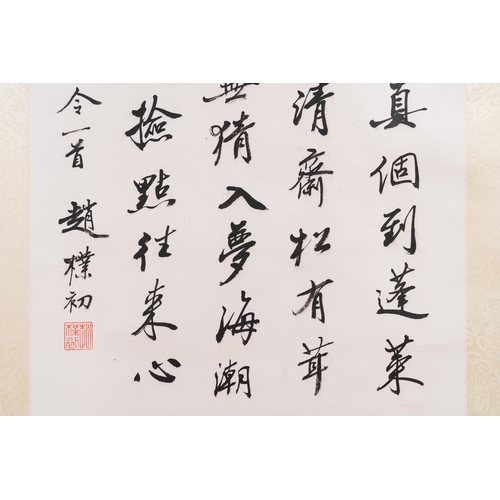 真個到蓬萊
清齋松有茸
無猜入夢海潮
撿點往來心
令一首 趙樸初